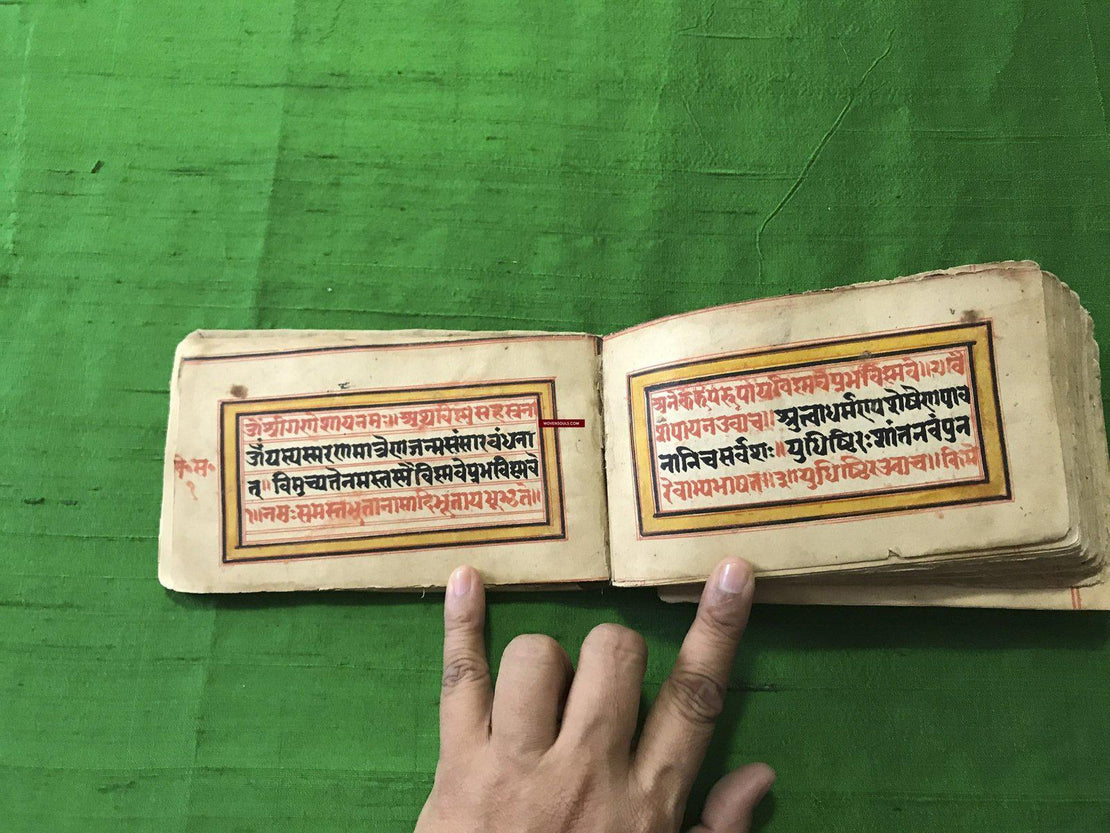 ॐश्रीगणेशायनमः॥अथविष्णुसहस्रना
ॐयस्यस्मरणमात्रेणजन्मसंसारबंधना
त्॥विमुच्यतेनमस्तस्मैविष्णवेप्रभविष्णवे
१॥नमःसमस्तभूतानामादिभूतायभूभृते॥
वि॰स॰
१
WOVENSOULS.COM
अनेकरूपरूपायविष्णवेप्रभविष्णवे॥२॥वै
शंपायनउवाच॥श्रुत्वाधर्मानशेषेणपाव
नानिचसर्वशः॥युधिष्ठिरःशांतनवंपुन
रेवाभ्यभाषत॥३॥युधिष्ठिरउवाच॥किमे